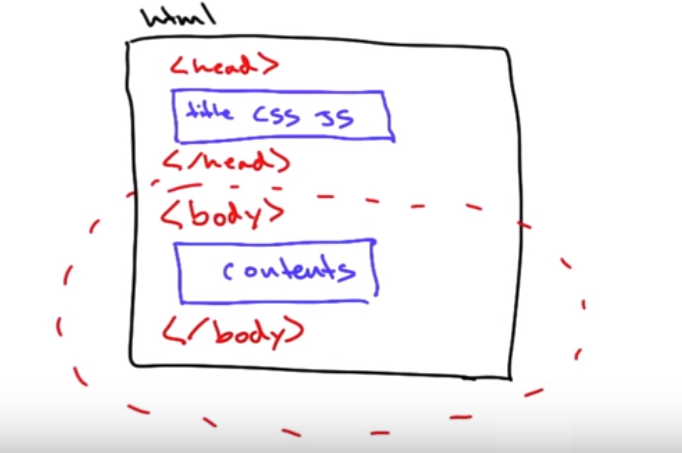 html
<head>
title CSS JS
</head>
<body>
contents
</body>